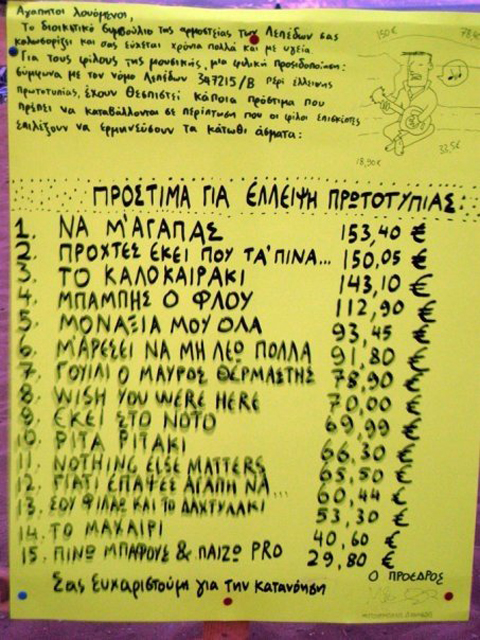 Αγαπητοί λουόμενοι,
Το διοικητικό συμβούλιο της αρμοστείας των Λεπέδων σας
καλωσορίζει και σας εύχεται χρόνια πολλά και με υγεία.
Για τους φίλους της μουσικής, μια φιλική προειδοποίηση:
σύμφωνα με τον νόμο Λεπέδων 347215/Β περί έλλειψης
πρωτοτυπίας, έχουν θεσπιστεί κάποια πρόστιμα που
πρέπει να καταβάλλονται σε περίπτωση που οι φίλοι επισκέπτες
επιλέξουν να ερμηνεύσουν τα κάτωθι άσματα:
150€
18,90€
32,5€
ΠΡΟΣΤΙΜΑ ΓΙΑ ΕΛΛΕΙΨΗ ΠΡΩΤΟΤΥΠΙΑΣ:
1. ΝΑ Μ'ΑΓΑΠΑΣ 153,40 €
2. ΠΡΟΧΤΕΣ ΕΚΕΙ ΠΟΥ ΤΑ'ΠΙΝΑ... 150,05 €
3. ΤΟ ΚΑΛΟΚΑΙΡΑΚΙ 143,10 €
4. ΜΠΑΜΠΗΣ Ο ΦΛΟΥ 112,90 €
5. ΜΟΝΑΞΙΑ ΜΟΥ ΟΛΑ 93,45 €
6. Μ'ΑΡΕΣΕΙ ΝΑ ΜΗ ΛΕΩ ΠΟΛΛΑ 91,80 €
7. ΓΟΥΙΛΙ Ο ΜΑΥΡΟΣ ΘΕΡΜΑΣΤΗΣ 78,90 €
8. WISH YOU WERE HERE 70,00 €
9. ΕΚΕΙ ΣΤΟ ΝΟΤΟ 69,99 €
10. ΡΙΤΑ ΡΙΤΑΚΙ 66,30 €
11. NOTHING ELSE MATTERS 65,50 €
12. ΓΙΑΤΙ ΕΠΑΨΕΣ ΑΓΑΠΗ ΝΑ... 60,44 €
13. ΣΟΥ ΦΙΛΑΩ ΚΑΙ ΤΟ ΔΑΧΤΥΛΑΚΙ 53,30 €
14. ΤΟ ΜΑΧΑΙΡΙ 40,60 €
15. ΠΙΝΩ ΜΠΑΦΟΥΣ & ΠΑΙΖΩ PRO 29,80 €
Ο ΠΡΟΕΔΡΟΣ
Σας ευχαριστούμε για την κατανόηση